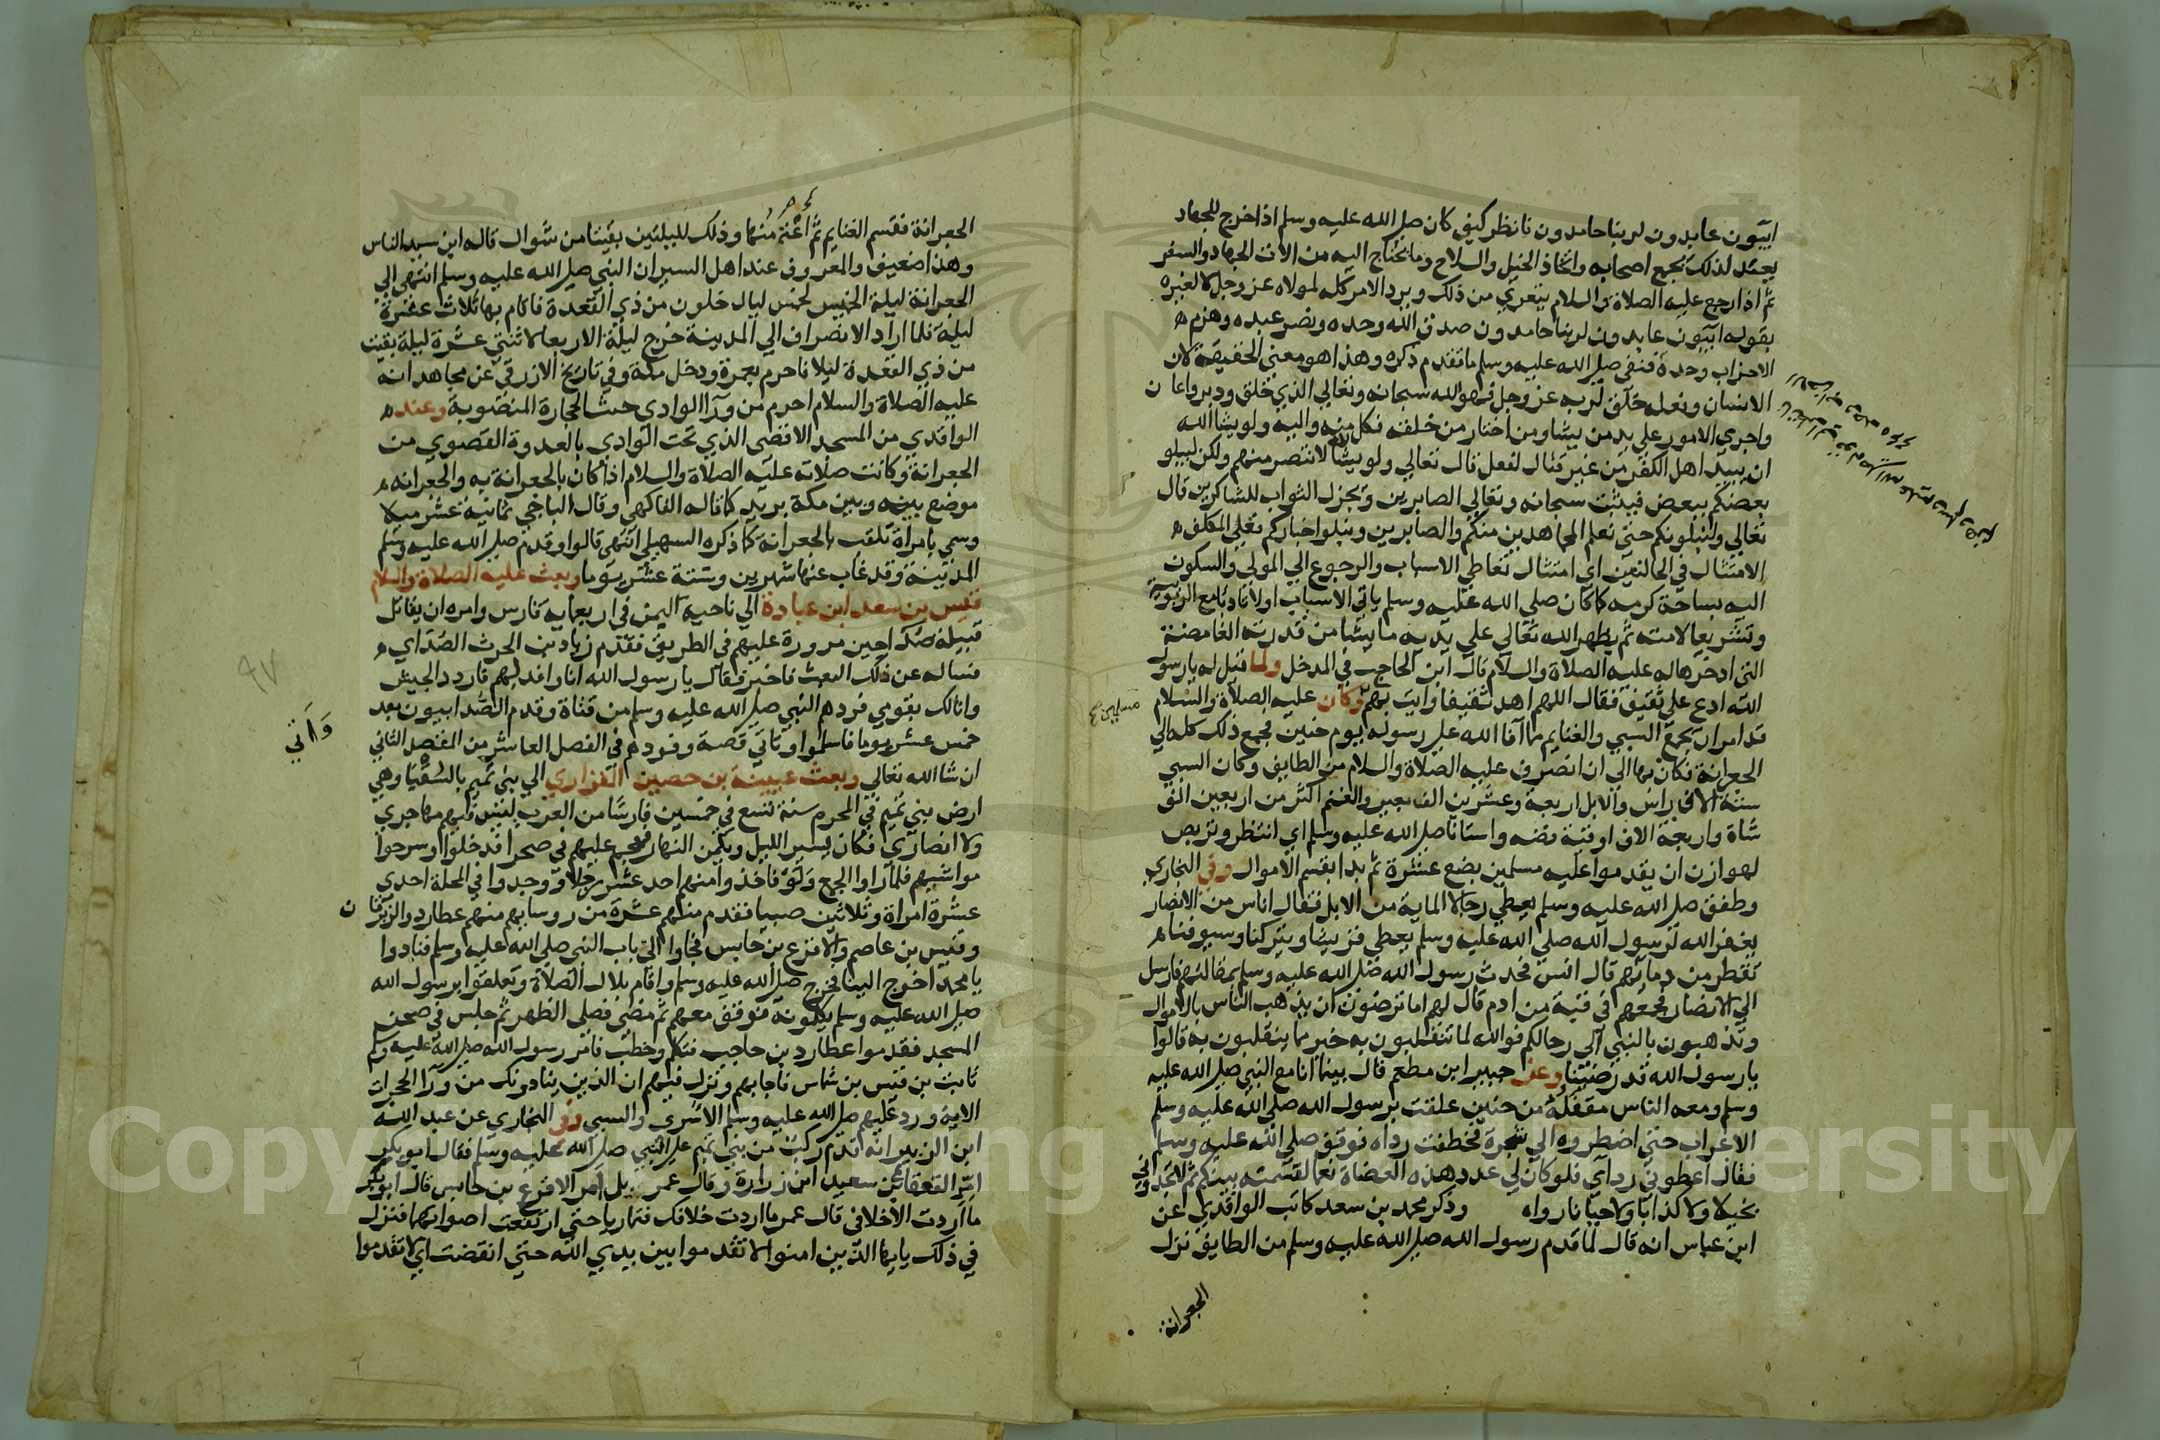 ايبون عابدون لربنا حامدون فانظر كيف كان صلى الله عليه وسلم اذا خرج للجهاد
يعتد لذلك بجمع اصحابه واتخاذ الخيل والسلاح وما يحتاج اليه من الات الجهاد والسفر
ثم اذا رجع عليه الصلاة والسلام يتعرى من ذلك ويرد الامر كله لمولاه عز وجل لا لغيره
بقوله ايبون عابدون لربنا حامدون صدق الله وحده ونصر عبده وهزم
الاحزاب وحده فنفى صلى الله عليه وسلم ما تقدم ذكره وهذا هو معنى الحقيقة لان
الانسان وفعله خلق لربه عز وجل فهو لله سبحانه وتعالى الذي خلق ودبر واعان
واجرى الامور على يد من يشا ومن اختار من خلقه فكل منه واليه ولو يشا الله
ان يبيد اهل الكفر من غير قتال لفعل قال تعالى ولو يشا الله لانتصر منهم ولكن ليبلو
بعضكم ببعض فيثيب سبحانه وتعالى الصابرين ويجزل الثواب للشاكرين قال
تعالى ولنبلونكم حتى نعلم المجاهدين منكم والصابرين ونبلوا اخباركم فعلى المكلف
الامتثال في الحالتين اي امتثال تعاطي الاسباب والرجوع الى المولى والسكون
اليه بساحة كرمه كما كان صلى الله عليه وسلم ياتي الاسباب اولا تادبا مع الربوبية
وتشريعا لامته ثم يظهر الله تعالى على يديه ما يشا من قدرته الغامضة
التي ادخرها له عليه الصلاة والسلام قال ابن الحاجب في المدخل ولما قيل له يا رسول
الله ادع على ثقيف فقال اللهم اهد ثقيفا وايت بهم وكان عليه الصلاة والسلام
مسلمين
قد امر ان يجمع السبي والغنايم مما افا الله على رسوله يوم حنين فجمع ذلك كله الى
الجعرانة فكان بها الى ان انصرف عليه الصلاة والسلام من الطايف وكان السبي
ستة الاف راس والابل اربعة وعشرين الف بعير والغنم اكثر من اربعين الف
شاة واربعة الاف اوقية فضه واستانا صلى الله عليه وسلم اي انتظر وتربص
لهوازن ان يقدموا عليه مسلمين بضع عشرة ثم بدا بقسم الاموال وفي البخاري
وطفق صلى الله عليه وسلم يعطي رجالا الماية من الابل فقال اناس من الانصار
يغفر الله لرسول الله صلى الله عليه وسلم يعطي قريشا ويتركنا وسيوفنا
تقطر من دمائهم قال انس فحدث رسول الله صلى الله عليه وسلم بمقالتهم فارسل
الى الانصار فجمعهم في قبة من ادم قال لهم اما ترضون ان يذهب الناس بالاموال
وتذهبون بالنبي الى رحالكم فوالله لما تنقلبون به خير مما ينقلبون به قالوا
يا رسول الله قد رضينا وعن جبير ابن مطعم قال بينما انا مع النبي صلى الله عليه
وسلم ومعه الناس مقفله من حنين علقت برسول الله صلى الله عليه وسلم
الاعراب حتى اضطروه الى شجرة فخطفت رداه فوقف صلى الله عليه وسلم
فقال اعطوني رداي فلو كان لي عدد هذه العضاة نعما لقسمته بينكم ثم لا تجدوني
بخيلا ولا كذابا ولا جبانا رواه وذكر محمد بن سعد كاتب الواقدي عن
ابن عباس انه قال لما قدم رسول الله صلى الله عليه وسلم من الطايف نزل
الجعرانة
الجعرانة فقسم الغنايم ثم اعتمر منها وذلك لليلتين بقيتا من شوال قال ابن سيد الناس
وهذا ضعيف والمعروف عند اهل السير ان النبي صلى الله عليه وسلم انتهى الى
الجعرانة ليلة الخميس لخمس ليال خلون من ذي القعدة فاقام بها ثلاث عشرة
ليلة فلما اراد الانصراف الى المدينة خرج ليلة الاربعا لاثنتي عشرة ليلة بقيت
من ذي القعدة ليلا فاحرم بعمرة ودخل مكة وفي تاريخ الازرقي عن مجاهد انه
عليه الصلاة والسلام احرم من ورا الوادي حيث الحجارة المنصوبة وعند
الواقدي من المسجد الاقصى الذي تحت الوادي بالعدوة القصوى من
الجعرانة وكانت صلاته عليه الصلاة والسلام اذا كان بالجعرانة به والجعرانه
موضع بينه وبين مكة بريد كما قاله الفاكهي وقال الباجي ثمانية عشر ميلا
وسمي بامراة تلقب بالجعرانة كما ذكره السهيلي انتهى قالوا وقدم صلى الله عليه وسلم
المدينة وقد غاب عنها شهرين وستة عشر يوما وبعث عليه الصلاة والسلام
قيس بن سعد ابن عبادة الى ناحية اليمن في اربعمايه فارس وامره ان يقاتل
قبيلة صدا حين مروره عليهم في الطريق فقدم زياد بن الحرث الصداي
فساله عن ذلك البعث فاخبر فقال يا رسول الله انا وافدهم فاردد الجيش
وانا لك بقومي فردهم النبي صلى الله عليه وسلم من قناة وقدم الصدايون بعد
خمس عشر يوما فاسلموا وتاتي قصة وفودهم في الفصل العاشر من المقصد الثاني
ان شا الله تعالى وبعث عيينة بن حصين الفزاري الى بني تميم بالسقيا وهي
ارض بني تميم في المحرم سنة تسع في خمسين فارسا من العرب ليس فيهم مهاجري
ولا انصاري فكان يسير الليل ويكمن النهار فهجم عليهم في صحرا قد خلوا وسرحوا
مواشيهم فلما راوا الجمع ولوا فاخذوا منهم احد عشر رجلا ووجدوا في المحلة احدى
عشرة امراة وثلاثين صبيا فقدم منهم عشرة من روسايهم منهم عطارد والزبرقان
وقيس بن عاصم والاقرع بن حابس فجاوا الى باب النبي صلى الله عليه وسلم فنادوا
يا محمد اخرج الينا فخرج صلى الله عليه وسلم واقام بلال الصلاة وتعلقوا برسول الله
صلى الله عليه وسلم يكلمونه فوقف معهم ثم مضى فصلى الظهر ثم جلس في صحن
المسجد فقدموا عطارد بن حاجب فتكلم وخطب فامر رسول الله صلى الله عليه وسلم
ثابت بن قيس بن شماس فاجابهم ونزل فيهم ان الذين ينادونك من ورا الحجرات
الاية ورد عليهم صلى الله عليه وسلم الاسرى والسبي وفي البخاري عن عبد الله
ابن الزبير انه قدم ركب من بني تميم على النبي صلى الله عليه وسلم فقال ابو بكر
امر القعقاع بن سعيد ابن زرارة وقال عمر بل امر الاقرع بن حابس قال ابو بكر
ما اردت الا خلافي قال عمر ما اردت خلافك فتماريا حتى ارتفعت اصواتهما فنزل
في ذلك يا ايها الذين امنوا لا تقدموا بين يدي الله حتى انقضت اي لا تقدموا
واني
٩٧